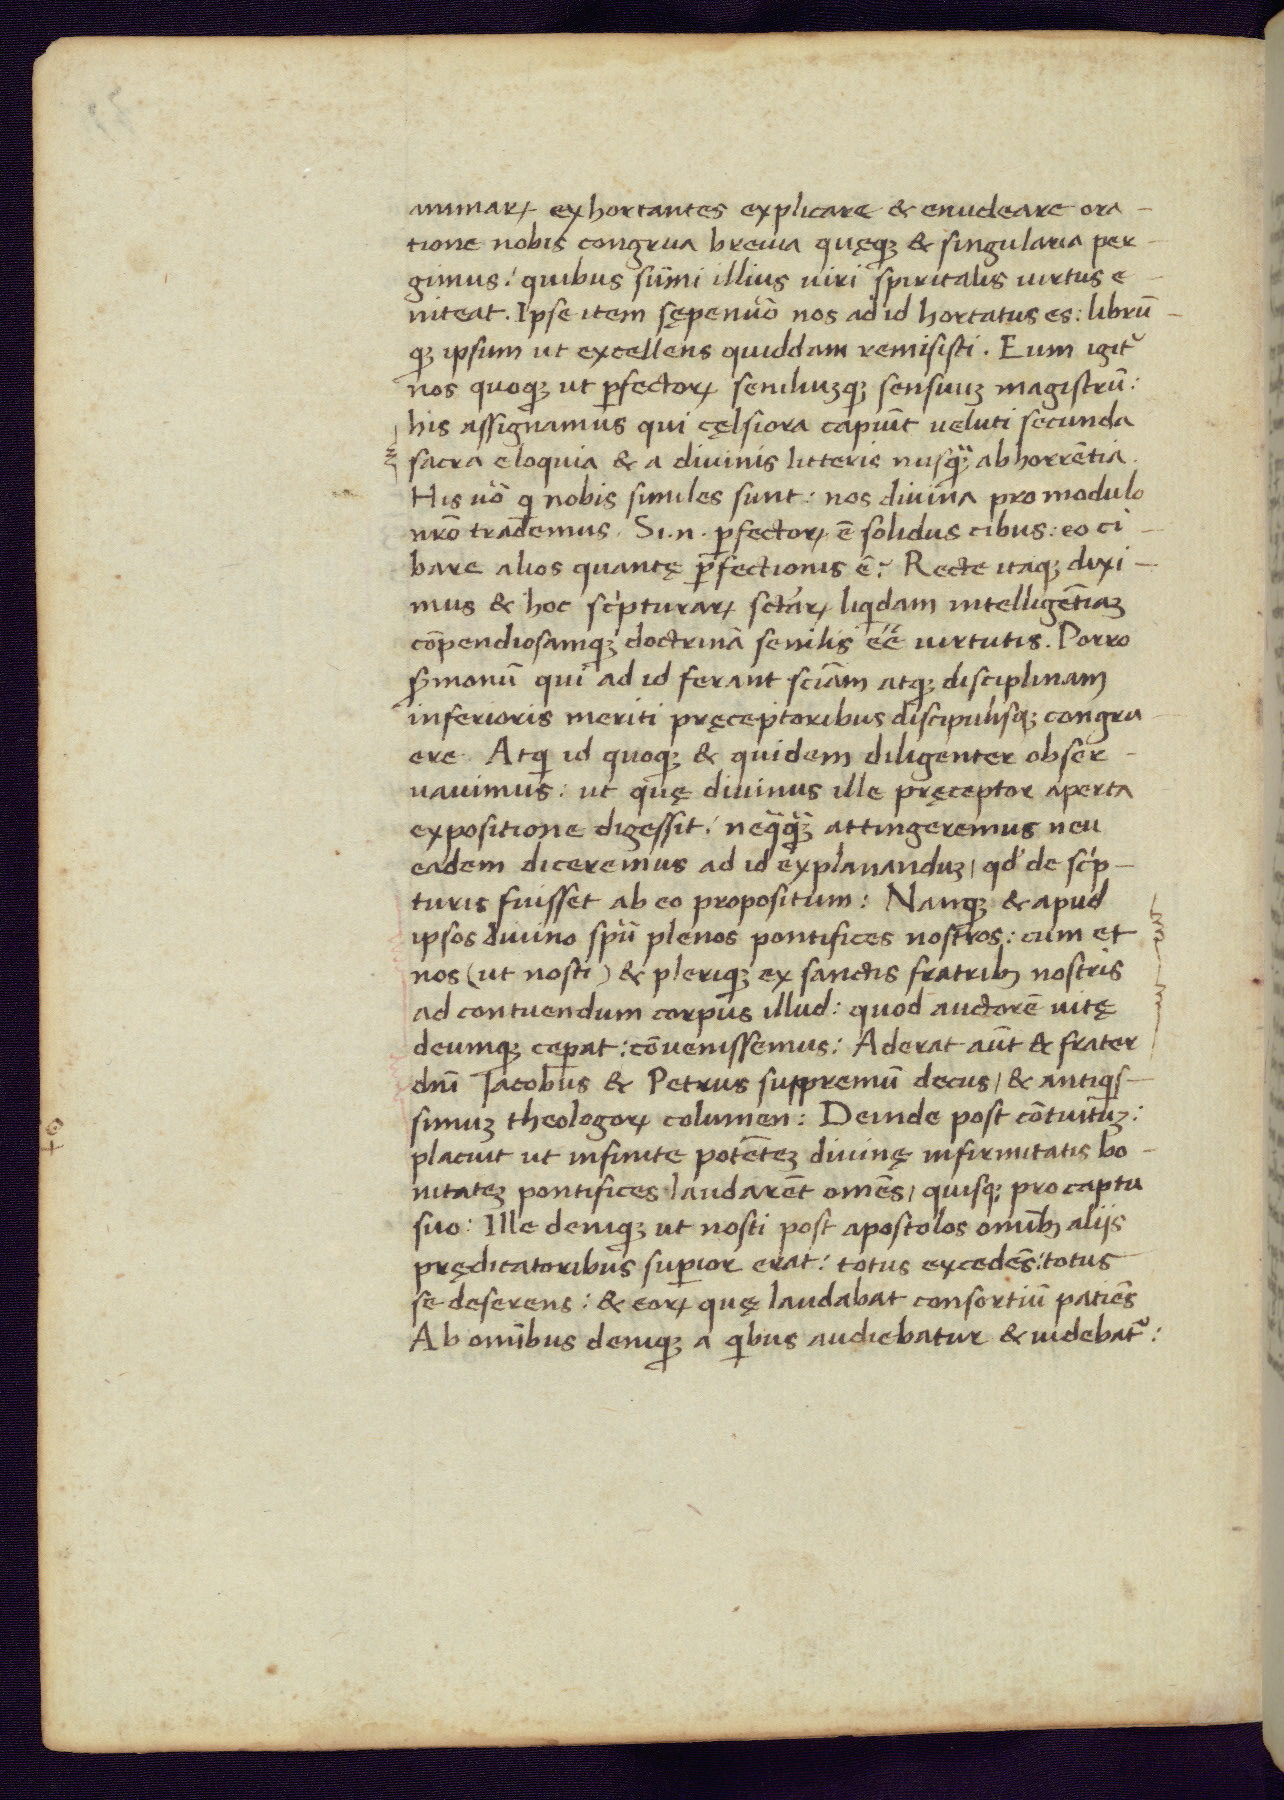 animarꝝ exhortantes explicare & enucleare ora-
tione nobis congrua breuia quęqꝫ & singularia per-
gimus: quibus sūmi illius uiri spiritalis uirtus e-
niteat. Ipse item sępenūo nos ad id hortatus es: librū-
qꝫ ipsum ut excellens quiddam remisisti. Eum igit᷑
nos quoqꝫ ut ꝑfectorꝝ seniliuꝫqꝫ sensuuꝫ magistrū:
his assignamus qui cęlsiora capiūt ueluti secunda
sacra eloquia & a diuinis litteris nusꝙꝫ abhorrētia.
His uō q nobis similes sunt: nos diuina pro modulo
nrō trademus. Si .n. ꝑfectorꝝ ē solidus cibus: eo ci-
bare alios quantę ꝑfectionis ē? Recte itaqꝫ dixi-
mus & hoc scͥpturarꝝ sctārꝝ liqͥdam intelligētiaꝫ
cōpendiosamqꝫ doctrinā senilis eē uirtutis. Porro
ꝭmonū qui ad id ferant sciām atqꝫ disciplinam
inferioris meriti pręceptoribus discipulisqꝫ congru-
ere. Atqͥ id quoqꝫ & quidem diligenter obser-
uauimus: ut quę diuinus ille pręceptor aperta
expositione digessit: neqͣqͣꝫ attingeremus neu
eadem diceremus ad id explananduꝫ, qd̕ de scͥp-
turis fuisset ab eo propositum: Nanqꝫ & apud
ipsos diuino spū plenos pontifices nostros: cum et
nos (ut nosti) & pleriqꝫ ex sanctis fratribꝫ nostris
ad contuendum corpus illud: quod auctorē uitę
deumqꝫ ceꝑat: cōuenissemus: Aderat aūt & frater
dnī Iacobus & Petrus suppremū decus, & antiqͥs-
simuꝫ theologorꝝ columen: Deinde post cōtuituꝫ:
placuit ut infinite potēteꝫ diuinę infirmitatis bo-
nitateꝫ pontifices laudarēt omēs, quisqꝫ pro captu
suo: Ille deniqꝫ ut nosti post apostolos omībꝫ alijs
prędicatoribus suꝑior erat: totus excedēs: totus
se deserens: & eorꝝ quę laudabat consortiū patiēs
Ab omībus deniqꝫ a qͥbus audiebatur & uidebat᷑: